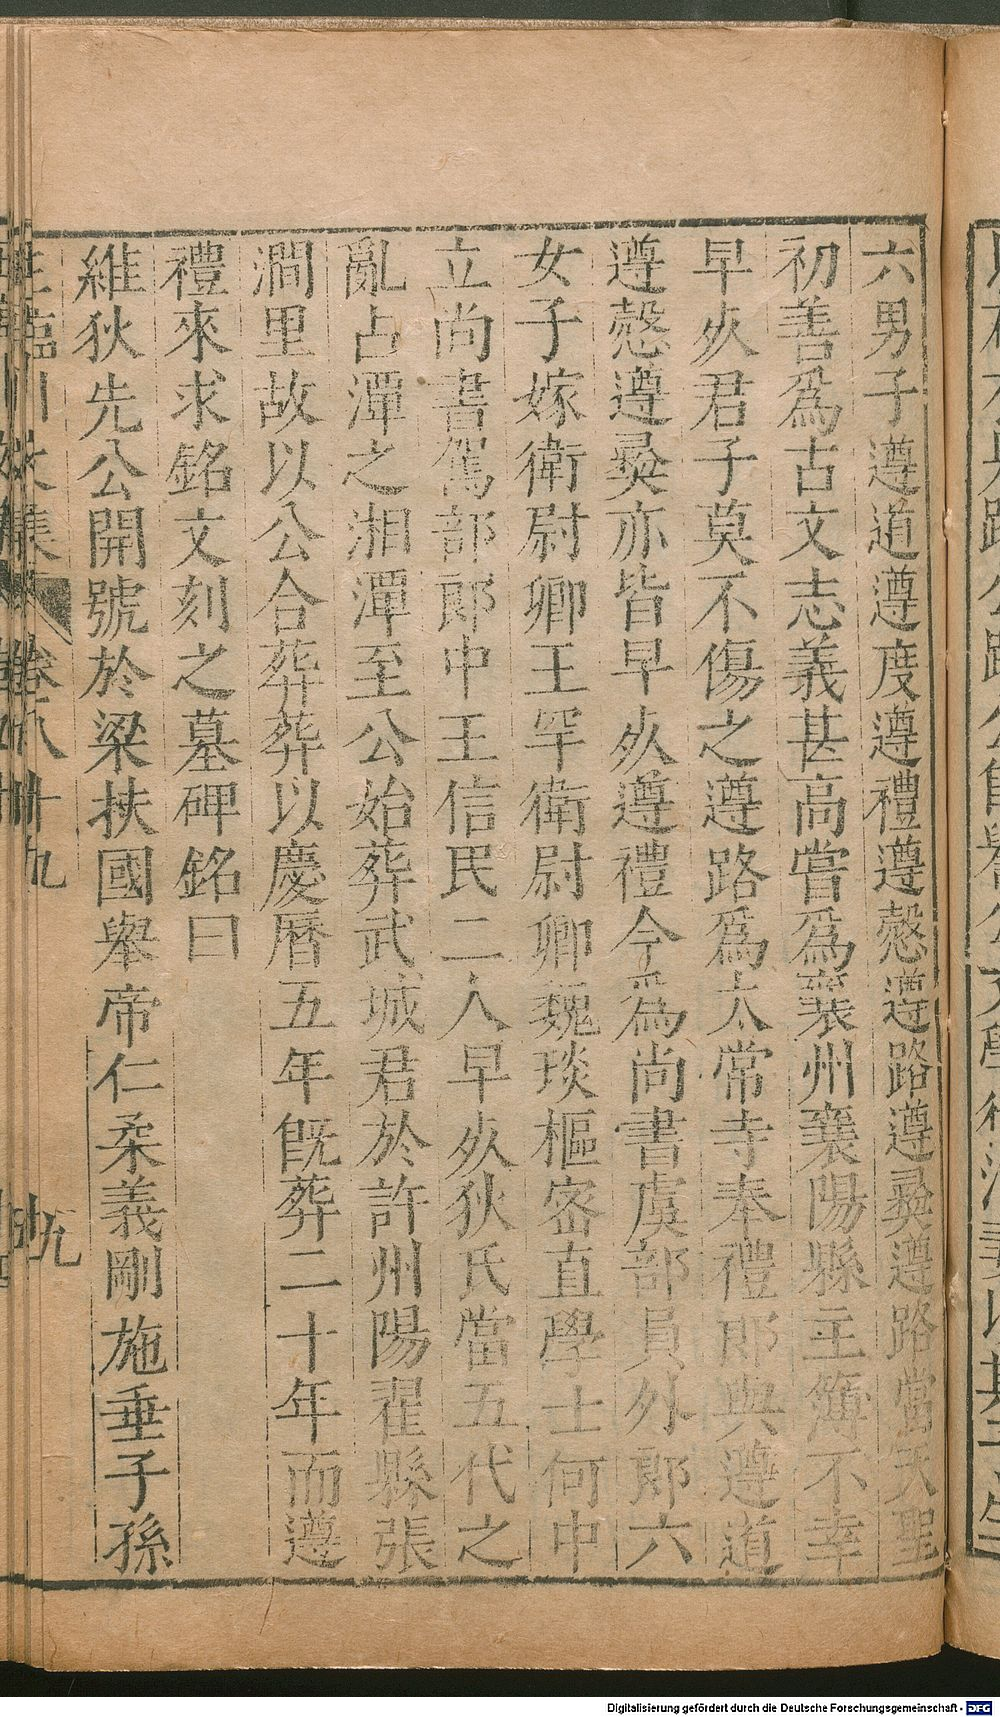 六男子遵道遵度遵禮遵愨遵路遵彛遵路當天聖
初善爲古文志義甚高嘗爲襄州襄陽縣主簿不幸
早夭君子莫不傷之遵路爲太常寺奉禮郎與遵道
遵愨遵彛亦皆早夭遵禮今爲尚書虞部員外郎六
女子嫁衛尉卿王罕衛尉卿魏琰樞密直學士何中
立尚書駕部郎中王信民二人早夭狄氏當五代之
亂占潭之湘潭至公始葬武城君於許州陽翟縣張
澗里故以公合葬葬以慶曆五年旣葬二十年而遵
禮來求銘文刻之墓碑銘曰
維狄先公開號於梁扶國舉帝仁柔義剛施垂子孫
王臨川文集 卷八十九 九
Digitalisierung gefördert durch die Deutsche Forschungsgemeinschaft - DFG